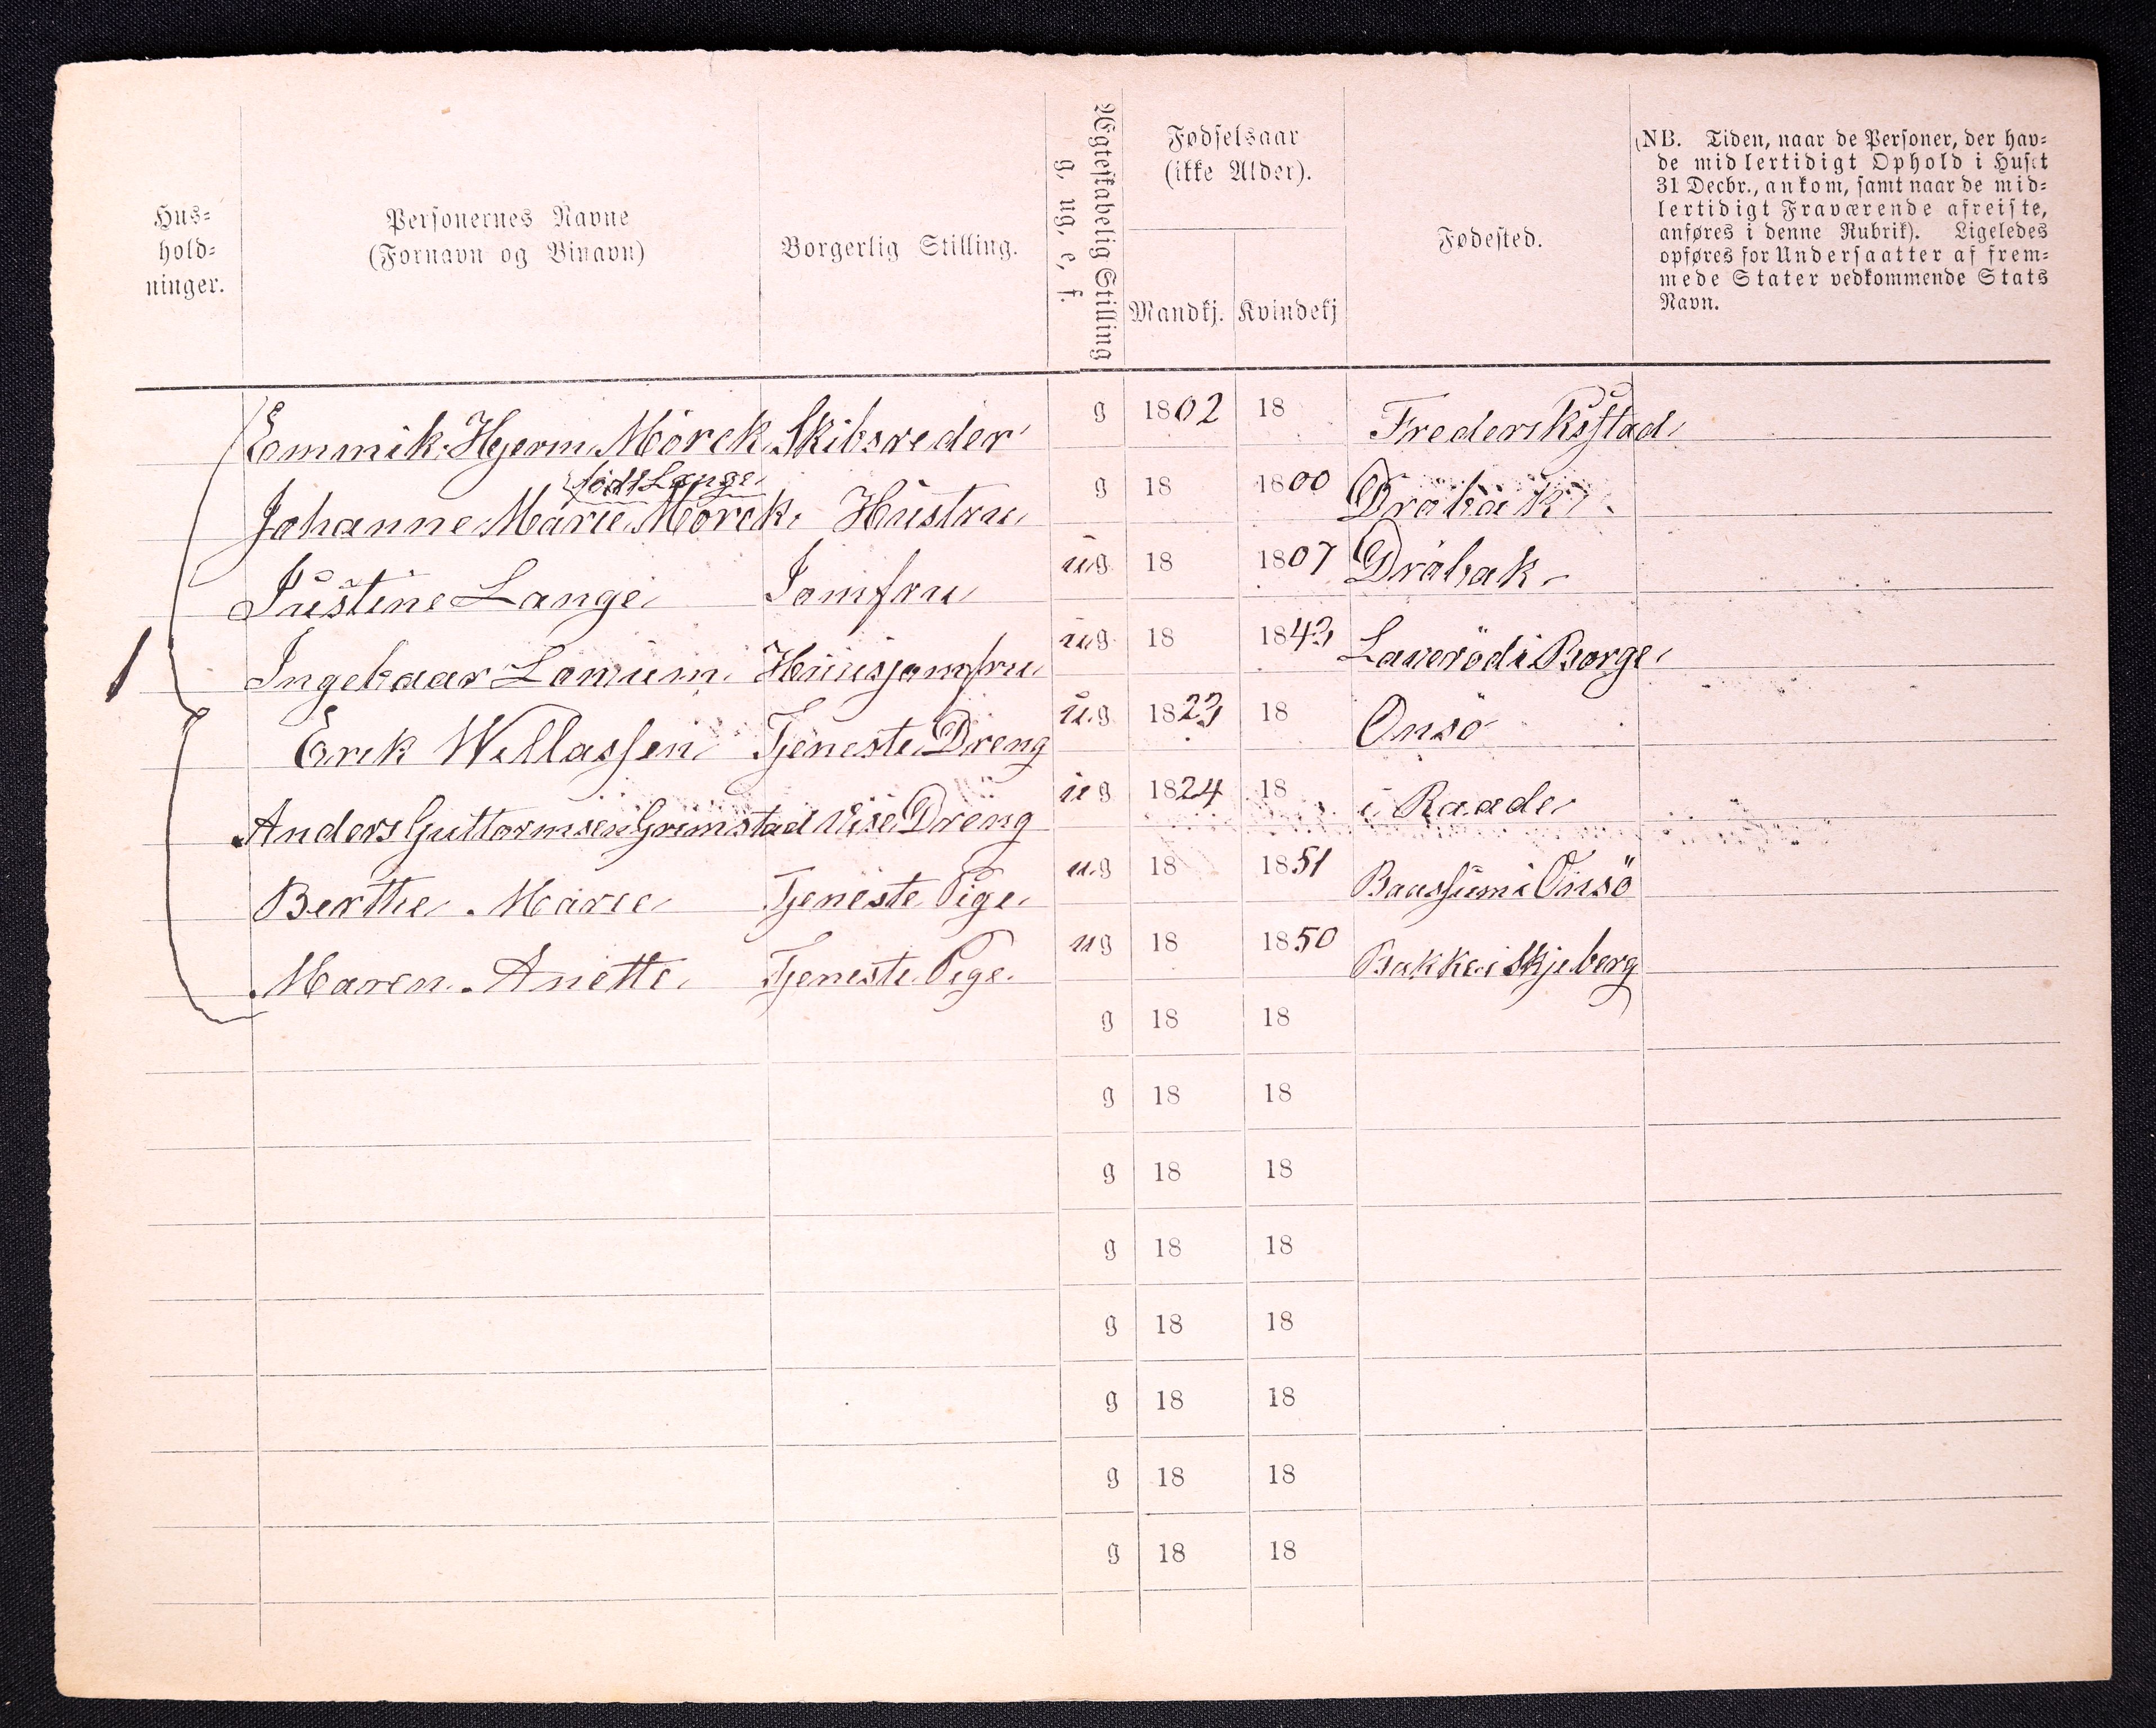 Hus-
hold-
ninger.
Personernes Navne
(Fornavn og Binavn)
Borgerlig Stilling.
Ægteskabelig Stilling
g, ug, e, f.
Fødselsaar
(ikke Alder).
Mandkj. Kvindekj
Fødested.
(NB. Tiden, naar de Personer, der hav-
de midlertidigt Ophold i Huset
31 Decbr., ankom, samt naar de mid-
lertidigt Fraværende afreiste,
anføres i denne Rubrik). Ligeledes
opføres for Undersaatter af frem-
mede Stater vedkommende Stats
Navn.
Emmik Hyerm Mörck Skibsreder g 1802 18 Frederiksstad
född Lange
Johanne Marie Mörck. Hustru g 18 1800 Dröbak
Justine Lange Jomfru ug 18 1807 Dröbak
1
Ingebaar Huusjomfru ug 18 1843 i Borge
Erik Willassen Tjeneste Dreng ug 1823 18 Onsö
Anders Guttormsen Grimstad Dreng ug 1824 18 i Raade
Berthe Marie Tjeneste Pige ug 18 1851 i Onsö
Maren Anette Tjeneste Pige ug 18 1850 Bakke i Skjeberg
g 18 18
g 18 18
g 18 18
g 18 18
g 18 18
g 18 18
g 18 18
g 18 18